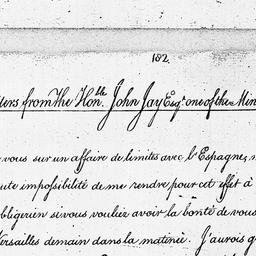 182.
ters from The Hon.ble John Jay Esqr. one of the Min
vous sur un affaire de limites avec l'Espagne,
ute impossibilité de me rendre pour cet effet à
bligerien si vous vouliez avoir la bonté de vous
ersailles demain dans la matinée. J'aurois